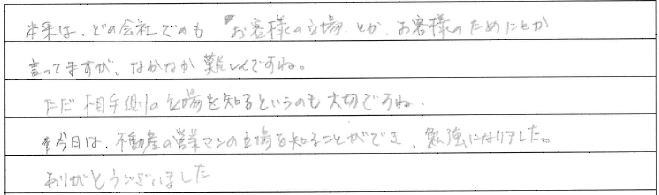 本来は、どの会社でのも お客様の立場 とか お客様のためにとか
言ってますが、なかなか難しいですね。
ただ 相手側の立場を知るというのも大切ですね。
今日は、不動産の営業マンの立場を知ることができ、勉強になりました。
ありがとうございました